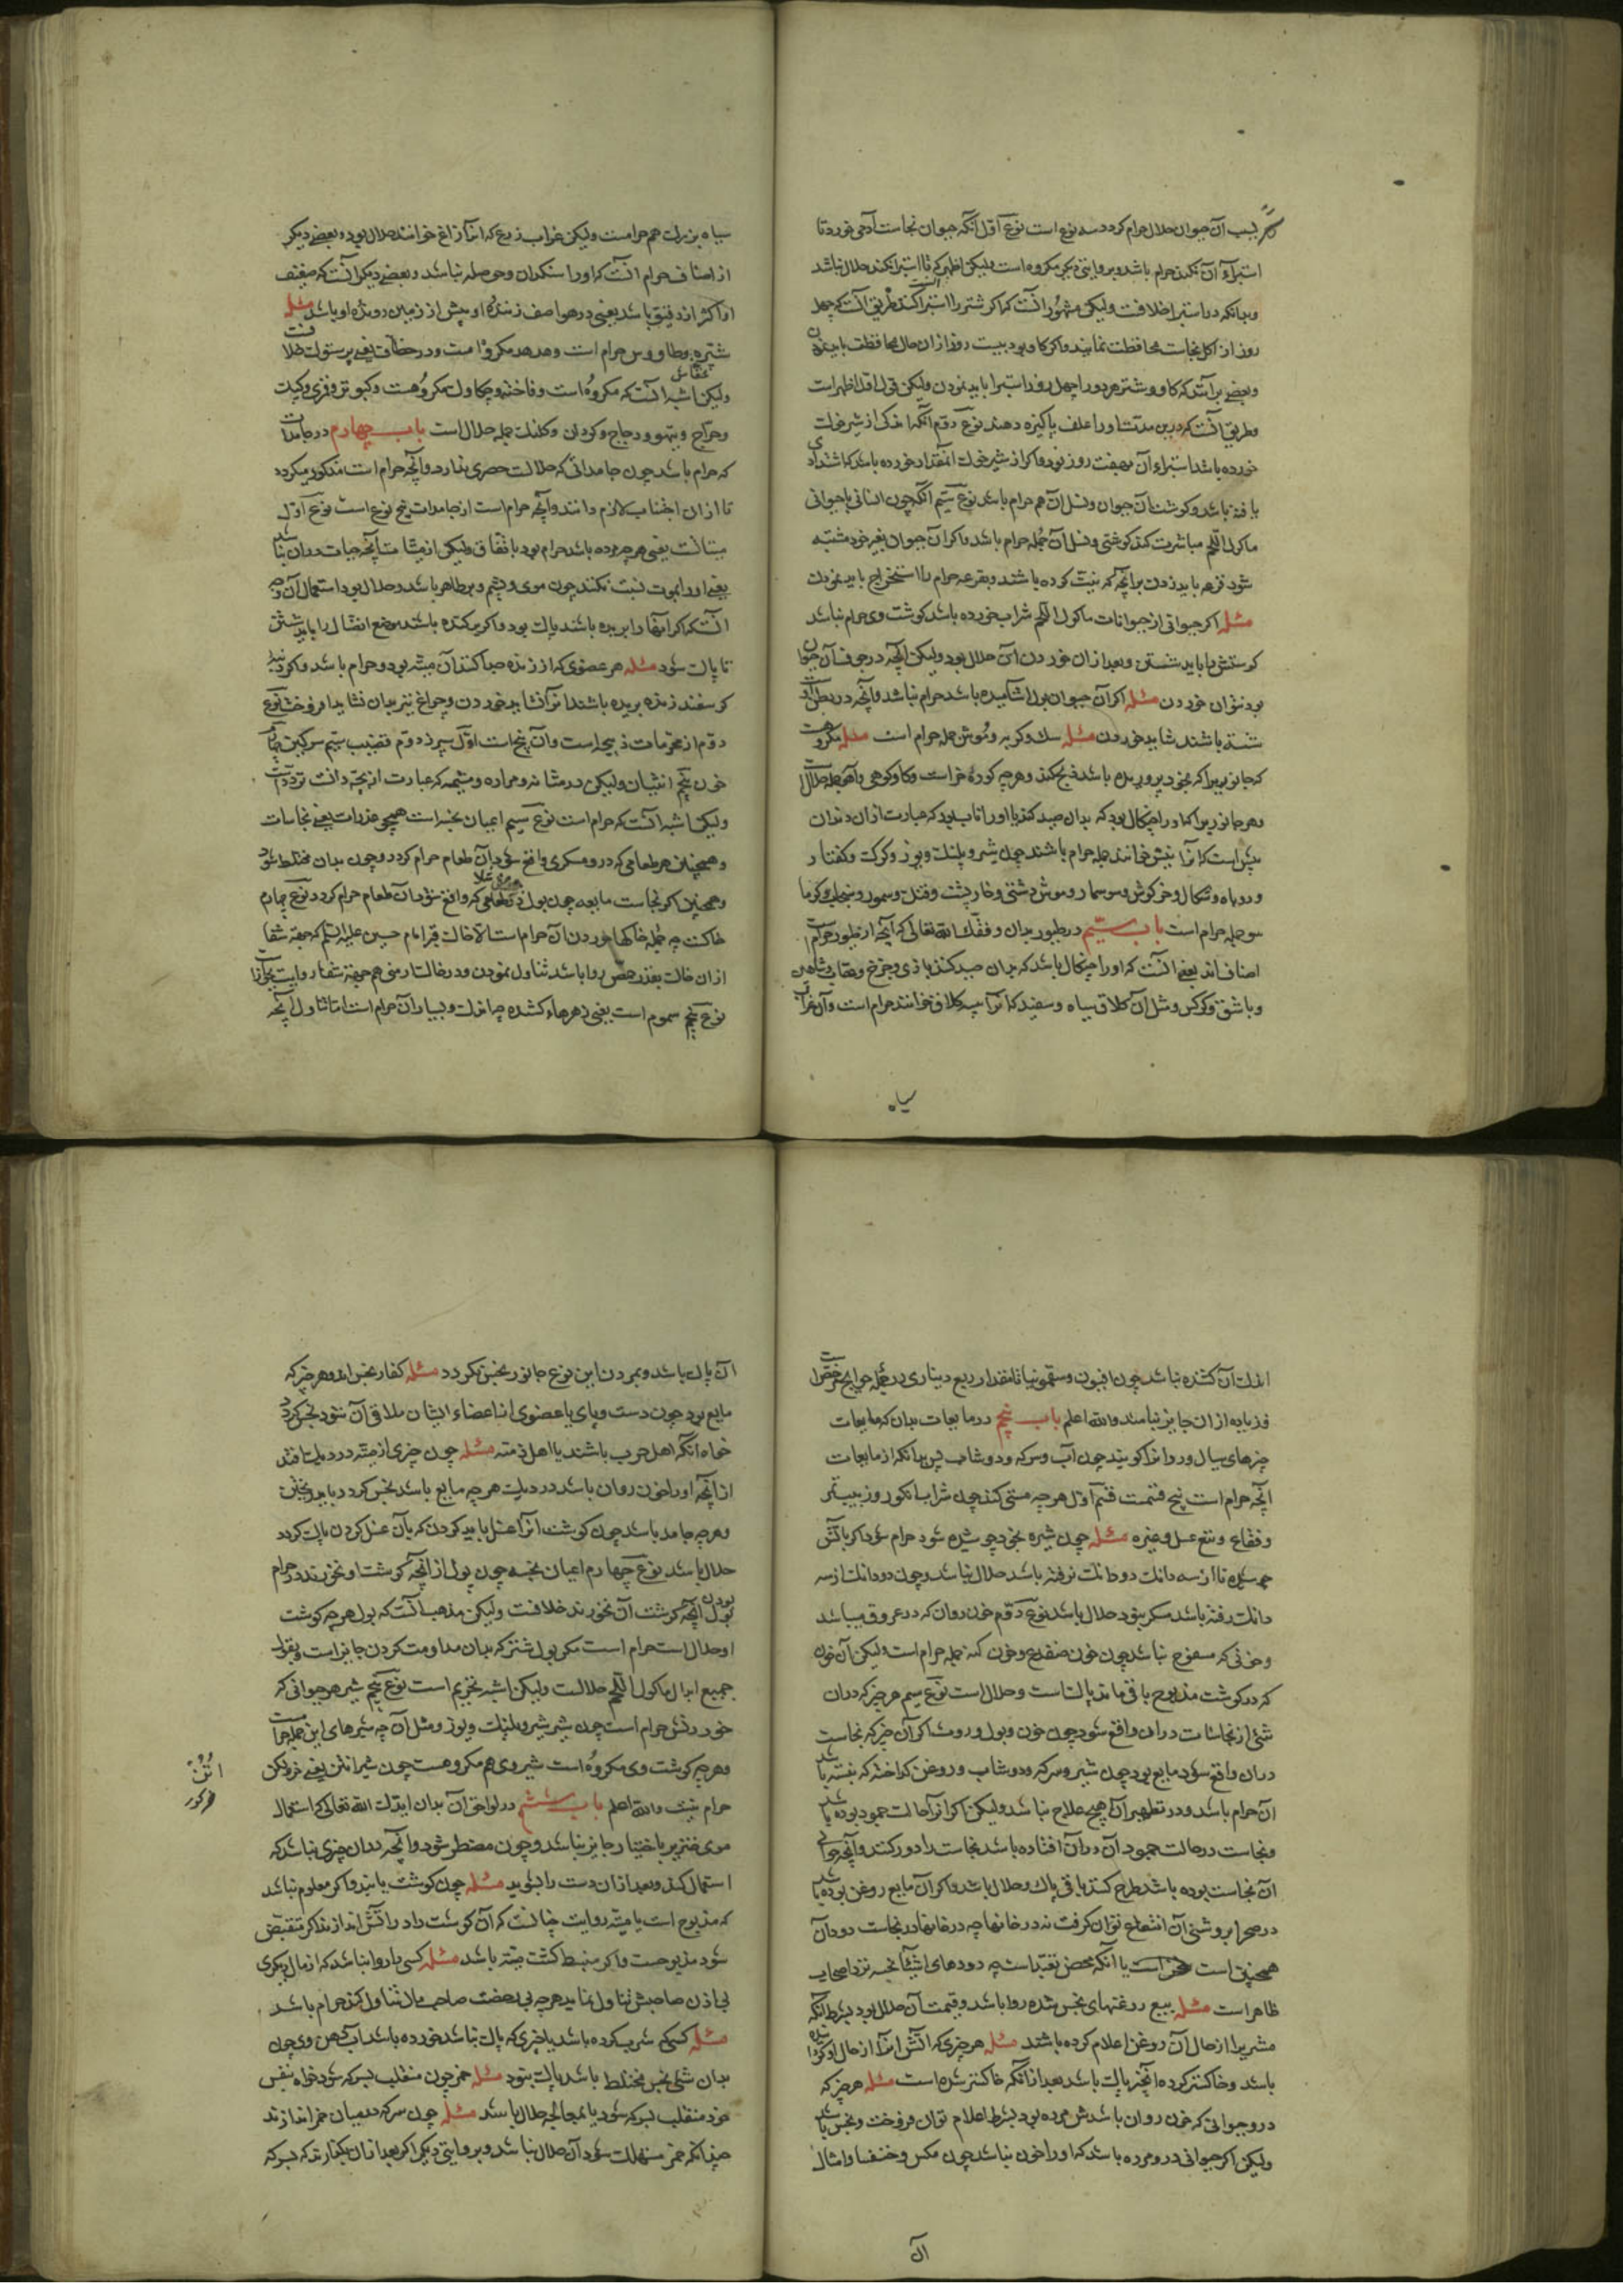 بسبب آن حیوان حلال حرام کردد سه نوع است نوع اول آنکه حیوان نجاست آدمی خورد تا
استبراء آن نکند حرام باشد و بروایتی دیکر مکروه است ولیکن اظهر که تا استبرا نکند حلال نباشد
و بدانکه در استبرا خلافست ولیکن مشهور آنست که اکر شتر را استبرا کنند طریق آنست که چهل
روز از اکل نجاست محافظت نمایند و اکر کاو بود بیست روز از ان حال محافظت باید نمودن
و بعضی برآنند که کاو و شتر هر دو را چهل روز استبرا باید نمودن ولیکن قول اول اظهر است
و طریق آنست که درین مدت او را علف پاکیزه دهند نوع دوم آنکه اندکی از شیر خوک
خورده باشد استبراء آن بهفت روز بود و اکر از شیر خوک آنمقدار خورده باشد که اشتدادی
یافته باشد و کوشت آن حیوان و نسل آن هم حرام باشد نوع سیم آنکه چون انسانی با حیوانی
ماکول اللحم مباشرت کند کوشتی و نسل آن جمله حرام باشد و اکر آن حیوان بغیر خود مشتبه
شود قرعه باید زدن برآنچه که نیت کرده باشند و بقرعه حرام را استخراج باید نمودن
مسئله اکر حیوانی از حیوانات ماکول اللحم شراب خورده باشد کوشت وی حرام نباشد
کوشتش را باید شستن و بعد از ان خوردن آن حلال بود ولیکن آنچه در جوف آن حیوان
بود نتوان خوردن مسئله اکر آن حیوان بول آشامیده باشد حرام نباشد و آنچه در بطن آن
شسته باشند شاید خوردن مسئله سک و کربه و موش جمله حرام است مسئله مکروهست
که جانوریرا که بخود پروریده باشد ذبح کند و هرچه کوره خر است و کاو کوهی و آهو جمله حلالست
و هر جانوریرا که او را چنکال بود که بدان صید کند یا او را ناب بود که عبارت از ان دندان
پیش است که آنرا نیش خوانند جمله حرام باشند چون شیر و پلنک و یوز و کرک و کفتار
و روباه و شکال و خرکوش و سوسمار و موش دشتی و خارپشت و فنک و سمور و سنجاب و کرما
سو جمله حرام است باب سیّم در طیور بدان وفقک الله تعالی که آنچه از طیور حرامست
اصناف اند یعنی آنست که او را چنکال باشد که بدان صید کند باز و چرخ و عقاب و شاهین
و باشق و کرکس و مثل آن کلاق سیاه و سفید که آنرا پیسه کلاق خوانند حرام است و آن غراب
سیاه
سیاه بزرک هم حرامست ولیکن غراب زرع که آنرا زاغ خوانند حلال بود و بعضی دیکر
از اصناف حرام آنست که او را سنکدان و حوصله نباشد و بعضی دیکر آنست که صفیف
او اکثر از دفیق باشد یعنی در هوا صف زننده او بیش از زمین دونده او باشد مسئله
شتره و طاووس حرام است و هدهد مکروه است و در خطاف یعنی پرستوک خلافست
خفاش
ولیکن اشبه آنست که مکروه است و فاخته و چکاوک مکروهست و کبوتر و قمری و کبک
و درّاج و تیهو و دجاج و کروان و کلنک جمله حلال است باب چهارم در جامدات
که حرام باشد چون جامداتی که حلالست حصری ندارد و آنچه حرام است مذکور میکردد
تا از ان اجتناب لازم دانند و آنچه حرام است از جامدات پنج نوع است نوع اول
میتاتست یعنی هر چه مرده باشد حرام بود باتفاق ولیکن از میتات آنچه حیات در ان نباشد
یعنی او را بموت نسبت نکنند چون موی و پشم و پر طاهر باشد و حلال بود استعمال آن و چه
آنستکه اکر آنها را بریده باشند پاک بود و اکر برکنده باشد موضع اتصال را باید شستن
تا پاک شود مسئله هر عضوی که از زنده جدا کنند آن میته بود و حرام باشد و اکر دنبه
کوسفند زنده بریده باشند آنرا نشاید خوردن و چراغ نیز بدان نشاید افروخت نوع
دوم از محرمات ذبیحه است و آن پنج است اول سپرز دوم قضیب سیم سرکین چهارم
خون پنجم انثیان ولیکن در مثانه و مراره و مشیمه که عبارت از بچه دانست تردد است
ولیکن اشبه آنست که حرام است نوع سیم اعیان نجسه است همچو عذرات یعنی نجاسات
و همچنین هر طعامی که درو مسکری واقع شود آن طعام حرام کردد و چون بدان مختلط شود
و همچنین اکر نجاست مایعه چون بول در طعامی که واقع شود آن طعام حرام کردد نوع چهارم
خاکست چه جمله خاکها خوردن آن حرام است الا خاک قبر امام حسین علیه السلم که جهة شفا
از ان خاک بقدر حمّص روا باشد تناول نمودن و در خاک ارمنی هم جهة شفا روایت بجواز
نوع پنجم سموم است یعنی زهرهاء کشنده چه اندک و بسیار آن حرام است اما تناول آنچه
اندک آن کشنده نباشد چون افیون و سقمونیا تا مقدار ربع دیناری در جمله حوایج مرخصست
و زیاده از ان جایز نباشد والله اعلم باب پنجم در مایعات بدان که مایعات
چیزهای سیال و روانرا کویند چون آب و سرکه و دوشاب پس بدانکه از مایعات
آنچه حرام است پنج قسمست قسم اول هرچه مستی کند چون شراب انکور و زبیب و تمر
و فقاع و نبع عسل و غیره مسئله چون شیره بخود جوشیده شود حرام شود اکر باتش
جوشیده تا از سه دانک دو دانک نرفته باشد حلال نباشد و چون دو دانک از سه
دانک رفته باشد مسکر نبود حلال باشد نوع دوم خون روان که در عروق میباشد
و خونی که مسفوح نباشد چون خون ضفدع و خون کنه جمله حرام است ولیکن آن خون
که در کوشت مذبوح باقی ماند پاکست و حلال است نوع سیم هر چیز که دران
شئ از نجاسات دران واقع شود چون خون و بول و روث اکر آن چیز که نجاست
دران واقع شود مایع بود چون شیر و سرکه و دوشاب و روغن کداخته که بسته باشد
آن حرام باشد و در تطهیر آن هیچ علاج نباشد ولیکن اکر آنرا حالت جمود بوده باشد
و نجاست در حالت جمود آن دران افتاده باشد نجاست را دور کنند و آنچه حوالی
آن نجاست بوده باشد طرح کنند باقی پاک و حلال باشد و اکر آن مایع روغن بوده باشد
در صحرا بروشنی آن انتفاع توان کرفت نه در خانها چه در خانها در نجاست دود آن
همچنین است یا آنکه محض تعبّد است چه دودهای اشیاء نجسه نزد اصحاب
ظاهر است مسئله بیع روغنهای نجس شده روا باشد و قیمت آن حلال بود بشرط آنکه
مشتریرا از حال آن روغن اعلام کرده باشند مسئله هر چیزی که آتش آنرا از حال او کردانیده
باشد و خاکستر کرده آنچیز پاک باشد بعد از آنکه خاکستر شده است مسئله هر چیز که
درو حیوانی که خون روان باشدش مرده بود بشرط اعلام توان فروخت و نجس باشد
ولیکن اکر حیوانی درو مرده باشد که او را خون نباشد چون مکس و خنفسا و امثال
آن
آن پاک باشد و بمردن این نوع جانور نجس نکردد مسئله کفار نجس اند و هر چیز که
مایع بود چون دست و پای یا عضوی از اعضاء ایشان ملاقی آن شود نجس کردد
خواه آنکه اهل حرب باشند یا اهل ذمّه مسئله چون چیزی از میته در دیک افتد
از آنچه او را خون روان باشد در دیک هرچه مایع باشد نجس کردد باید ریختن
و هرچه جامد باشد چون کوشت آنرا غسل باید کردن که بآن غسل کردن پاک کردد
حلال باشد نوع چهارم اعیان نجسه چون بول از آنچه کوشت او نخورند در حرام
بودن
بول آنچه کوشت آن نخورند خلافست ولیکن مذهب آنست که بول هرچه کوشت
او حلال است حرام است مکر بول شتر که بدان مداومت کردن جایز است و بقولی
جمیع ابوال ماکول اللحم حلالست ولیکن اشبه تحریم است نوع پنجم شیر هر حیوانی که
خوردنش حرام است چون شیر شیر و پلنک و یوز و مثل آن چه شیرهای این جمله حرامست
و هرچه کوشت وی مکروه است شیر وی هم مکروهست چون شیر اتن یعنی خر ولیکن
اُتُن خر کور
حرام نیست والله اعلم باب ششم در لواحق آن بدان ایدک الله تعالی که استعمال
موی خنزیر باختیار جایز نباشد و چون مضطر شود و آنچه دران چیزی نباشد که
استعمال کند و بعد از ان دست را بشوید مسئله چون کوشت یابند و اکر معلوم نباشد
که مذبوح است یا میته روایت چنانست که آن کوشت را در آتش اندازند اکر منقبض
شود مذبوحست و اکر منبسط کشت میته باشد مسئله کسی را روا نباشد که از مال دیکری
بی اذن صاحبش تناول نماید هرچه بی رخصت صاحب مال تناول کند حرام باشد
مسئله کسیکه شرب کرده باشد یا چیزی که پاک نباشد خورده باشد آب دهن وی چون
بدان شئ نجس مختلط باشد پاک نبود مسئله خمر چون منقلب بسرکه شود خواه بنفس
خود منقلب بسرکه شود یا بمعالجه حلال باشد مسئله چون سرکه در میان خمر اندازند
چنانکه خمر مستهلک شود آن حلال نباشد و بروایتی دیکر اکر بعد از ان بکذارند که بسرکه